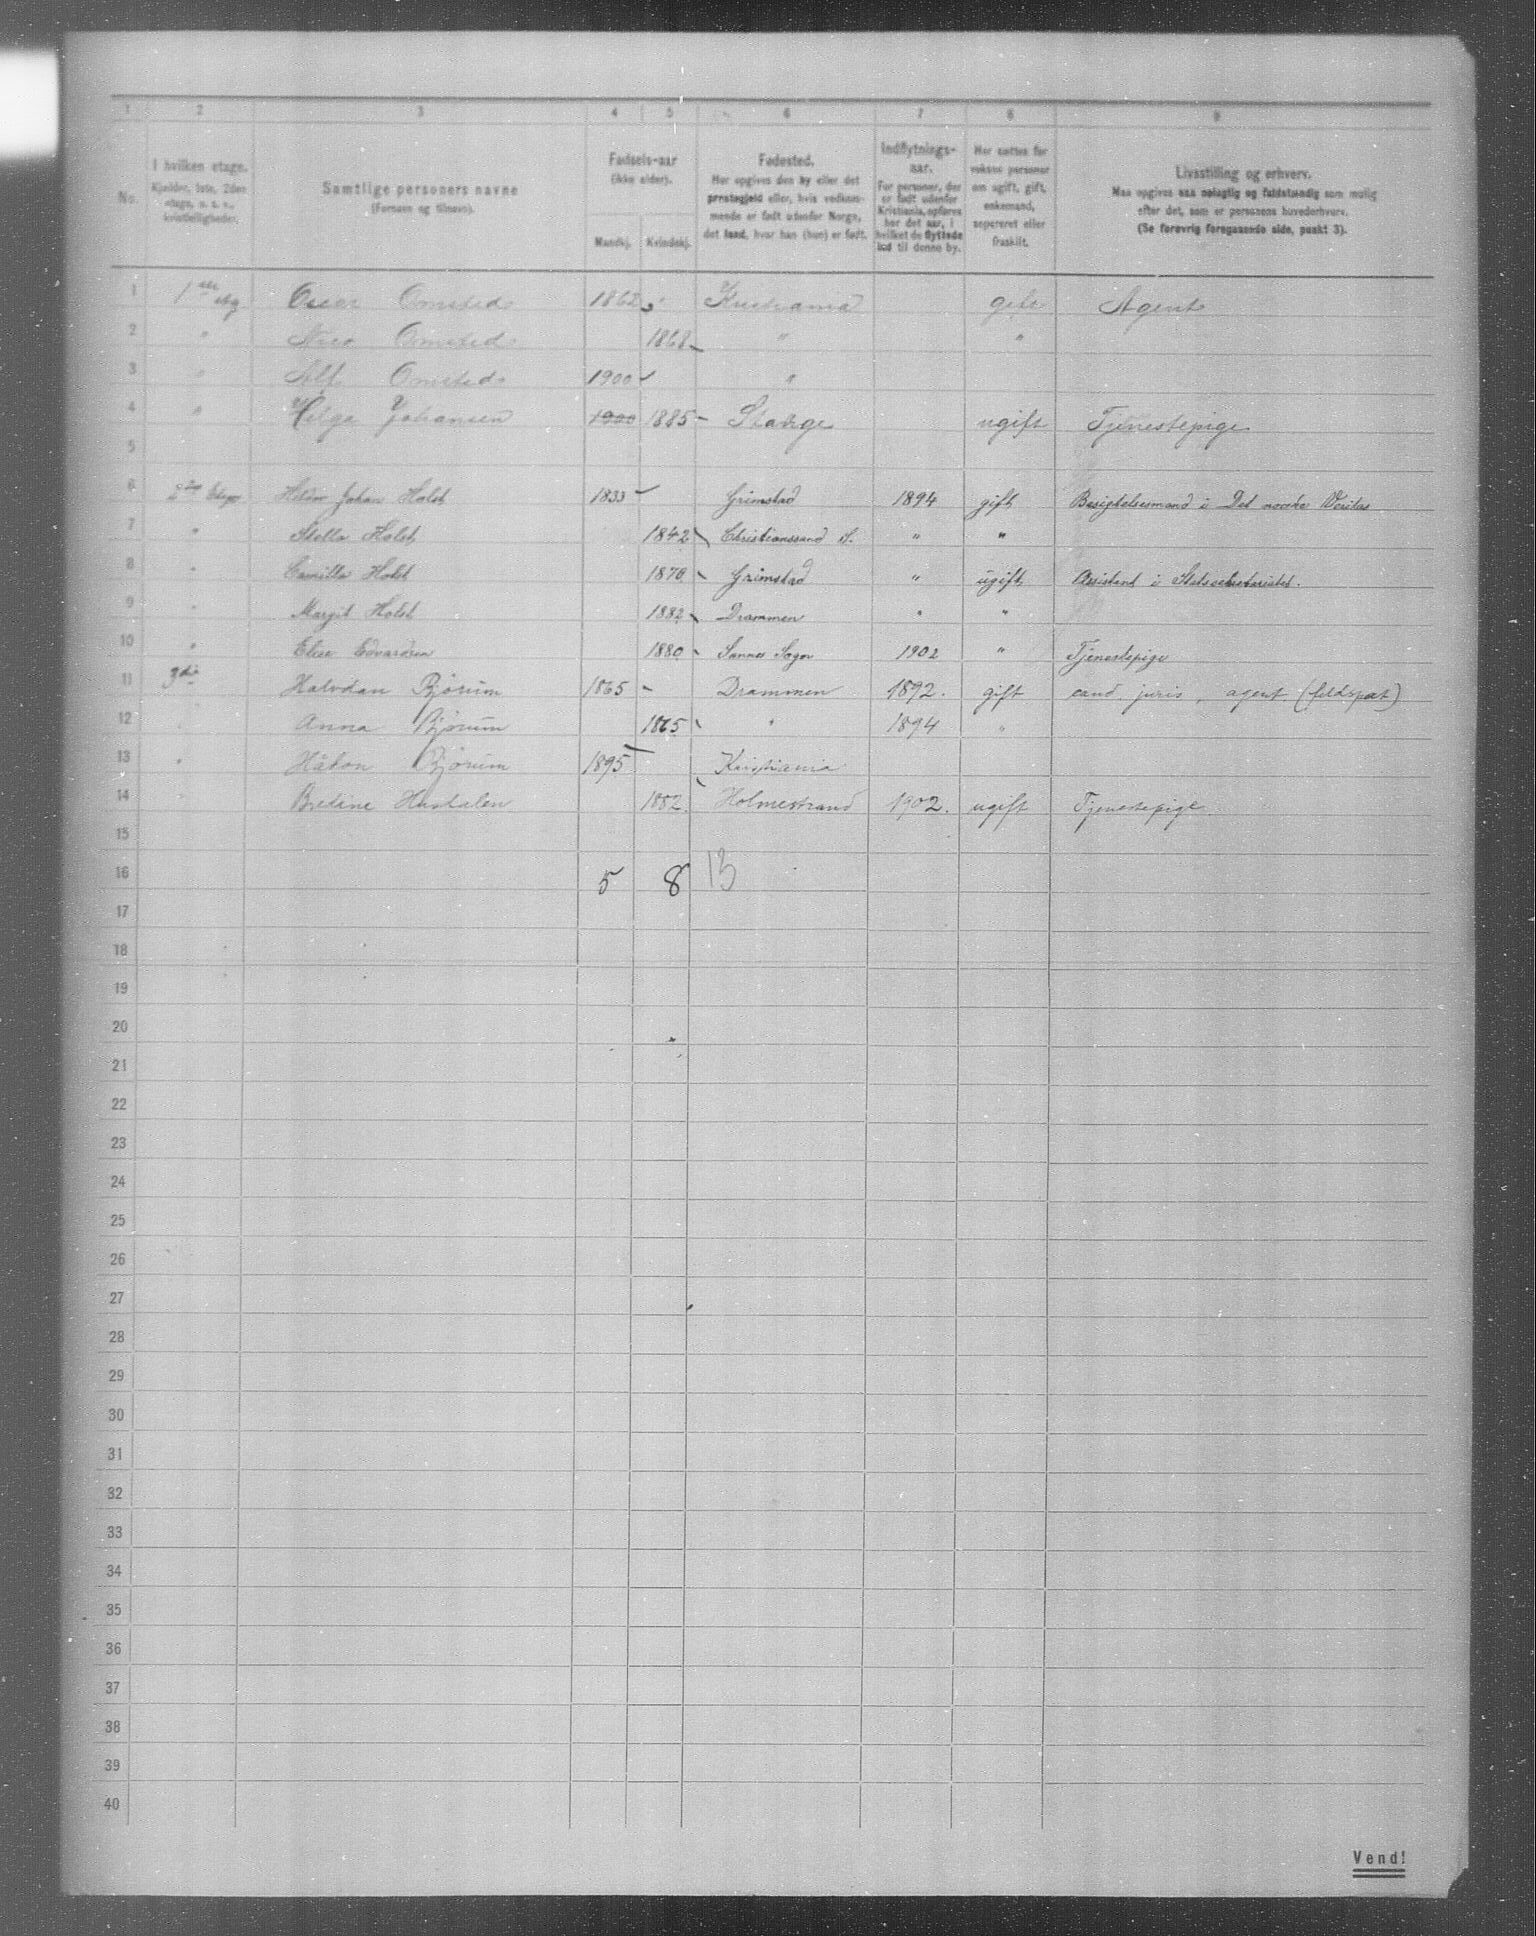 1 2 3 4 5 6 7 8 9
No.
I hvilken etage.
Kjælder, 1ste, 2den
etage, o. s. v.,
kvistleiligheder.
Samtlige personers navne
(Fornavn og tilnavn).
Fødsels-aar
(ikke alder).
Mandkj. Kvindekj.
Fødested.
Her opgives den by eller det
prestegjeld eller, hvis vedkom-
mende er født udenfor Norge,
det land, hvor han (hun) er født.
Indflytnings-
aar.
For personer, der
er født udenfor
Kristiania, opføres
her det aar, i
hvilket de flyttede
ind til denne by.
Her sættes for
voksne personer
om ugift, gift,
enkemand,
separeret eller
fraskilt.
Livsstilling og erhverv.
Maa opgives saa nøiagtig og fuldstændig som mulig
efter det, som er personens hovederhverv.
(Se forøvrig foregaaende side, punkt 3).
1 1ste Etg Oscar Omsteds 1862 " Kristiania gift Agent
2 " Omsted 1868 " "
3 " Alf Omsteds 1900 "
4 " Helga Johansen 1900 1885 Stange ugift Tjenestepige
5
6 2den Etage Johan Holst 1833 Grimstad 1894 gift Besigtelsesmand i Det norske Veritas
7 " Stella Holst 1842 Christianssand S. " "
8 " Camilla Holst 1870 Grimstad " ugift Assistent i Statssekretariatet.
9 " Margit Holst 1882 Drammen " "
10 " Elise Edvardsen 1880 Sannes Sogn 1902 " Tjenestepige
11 3die Halvdan Bjørum 1865 Drammen 1892. gift cand. juris, agent (feldspat)
12 " Anna Bjørum 1865 " 1894 "
13 " Håkon Bjørum 1895 Kristiania
14 Bredine Hastalen 1882. Holmestrand 1902. ugift Tjenestepige.
15
16 5 8 13
17
18
19
20
21
22
23
24
25
26
27
28
29
30
31
32
33
34
35
36
37
38
39
40
Vend!